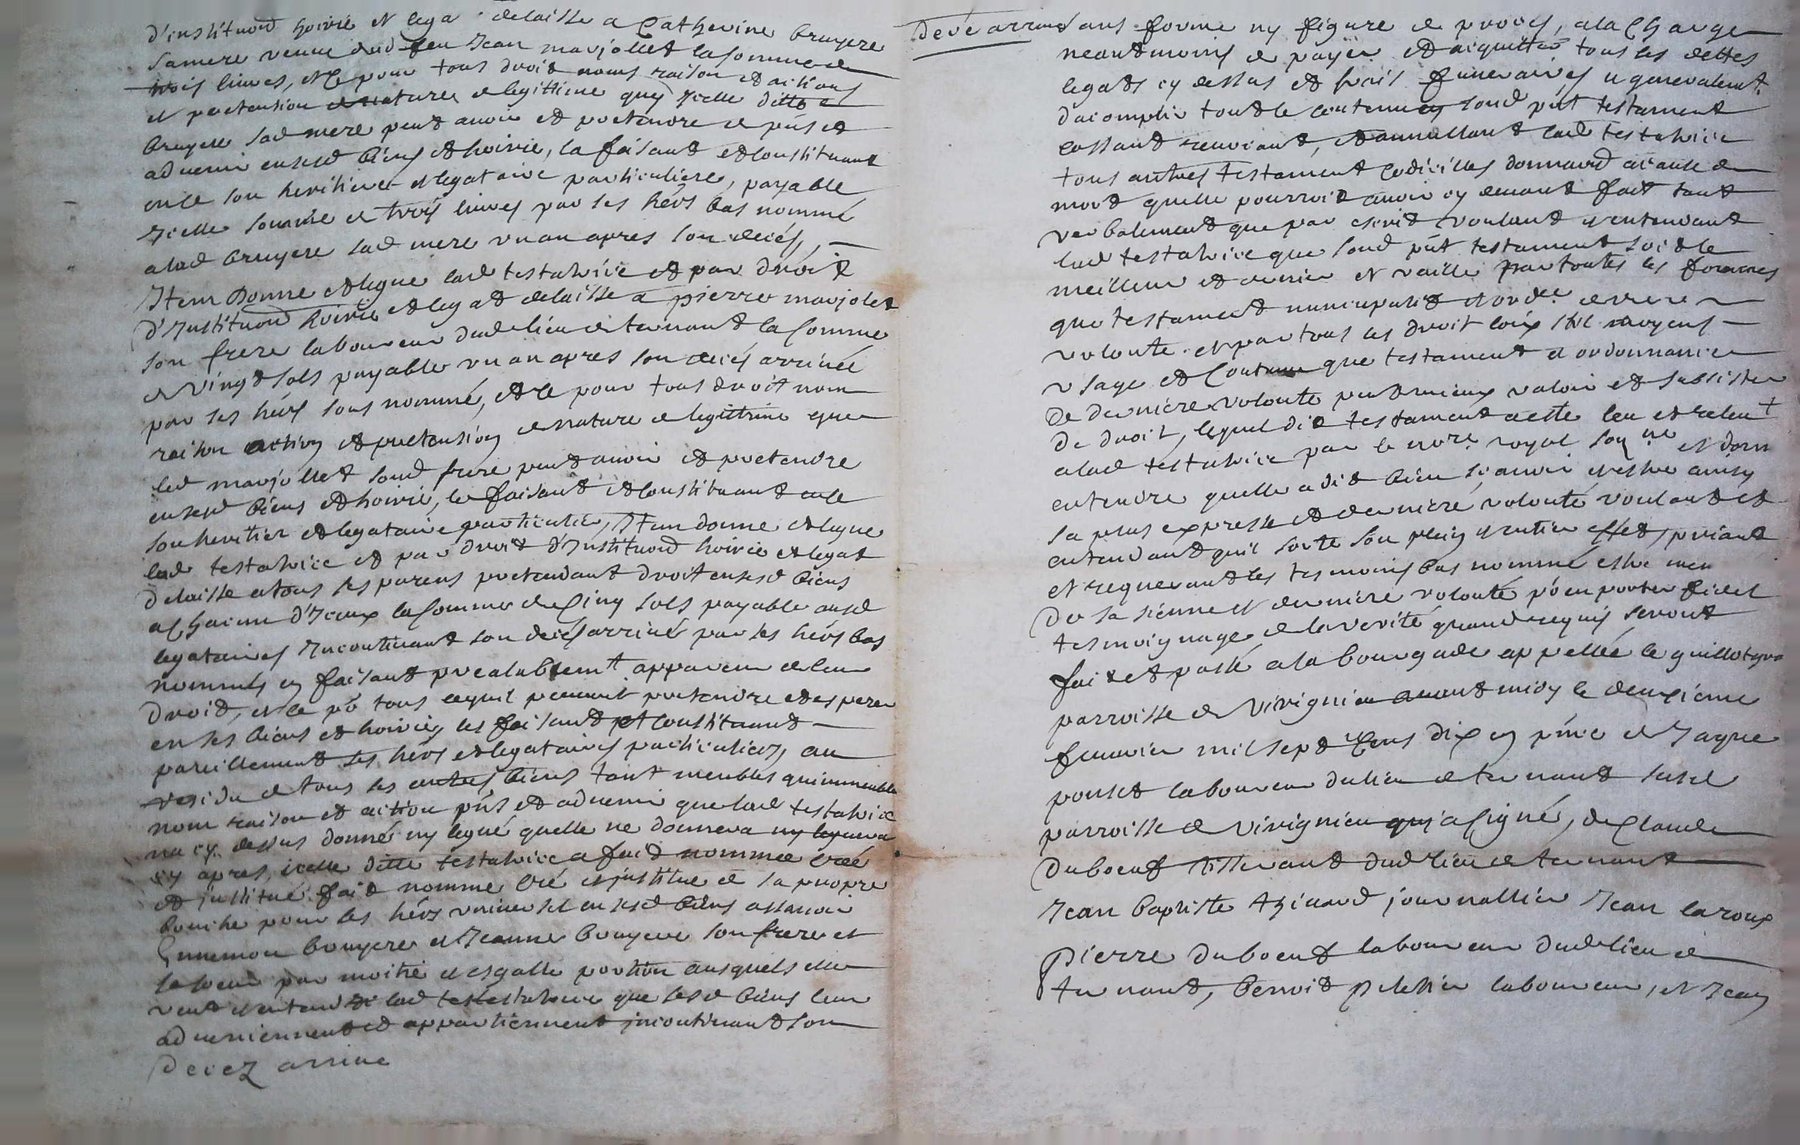 d'instituaõn hoirie et lega delaisse a Catherine bruyere
sa mere veuve dud feu Jean marjollet la somme de
trois livres, et ce pour tous droit noms raison et actions
et pretention de nature de legittime que jcelle ditte
bruyere sad mere peut avoir et pretendre de pñt et
advenir en sesd biens et hoirie, la faisant et constituant
en ce son heritiere et legataire particuliere, payable
jcelle somme de trois livres par ses hers bas nommé
a lad bruyere sad mere un an apres son deces,
Jtem Donne et legue lad testatrice et par droit
d'Jnstituaõn hoirie et legat delaisse a pierre marjolet
son frere laboureur dud lieu de ternant la somme
de vingt sols payable un an apres son deces arrivée
par ses hers sous nommé, et ce pour tous droit nom
raison action et pretension de nature de legittime que
led marjollet soud frere peut avoir et pretendre
en sesd biens et hoirie, le faisant et constituant en ce
son heritier et legataire particulier, Jtem donne et legue
lad testatrice et par droit d'Jnstituaõn hoirie et legat
delaisse a tous ses parens pretendant droit en sesd biens
a chacun d'Jceux la somme de Cinq sols payable ausd
legataires Jncontinant son deces arrivé par ses hers bas
nommés en faisant prealablemt apparoir de leur
droit, et ce po tous ce quil pouroit pretendre et esperer
en ses biens et hoirie, les faisant et constituant
pareillement ses hers et legataires particuliers, au
residu de tous ses autres biens tant meubles quimmeuble
nom raison et action pñs et advenir que lad testatrice
na cy dessus donné ny legué quelle ne donnera ny leguera
cy apres, jcelle ditte testatrice a fait nommée créé
et jnstitué fait nomme cré et jnstitue de sa propre
bouche pour ses hers universel en sesd biens assavoir
Ennemon bruyere et Jeanne bruyere son frere et
sa soeur par moitié et esgalle portion ausquels elle
veut et entend lad testatrice que sesd biens leur
adviennent et appartiennent jncontinant son
Decez arrivé
Decé arrivé sans forme ny figure de procès, a la Charge
neantmoins de payer et acquitter tous les dettes
legats cy dessus et frais funeraires et generalemt
dacomplir tout le contenu en soud pñt testament
cassant revocant, et annullant lad testatrice
tous autres testament codicilles donnaõn a cause de
mort quelle pourroit avoir cy devant fait tant
verbalement que par escrit voulant et entendant
lad testatrice que soud pñt testament soit le
meilleur et dernier et vaille par toutes les formes
que testament nuncupatif et ordce derniere
volonté et par tous les droit loix stil moyens
usage et Coutume que testament et ordonnance
De derniere volonté peut mieux valoir et subsister
de droit, lequel dit testament a esté leu et releut
a lad testatrice par le nore royal sousne et dont
entendre quelle a dit bien scavoir et estre ainsy
sa plus expresse et derniere volonté voulant et
entendant quil sorte son plein et entier effet, priant
et requerant les tesmoins bas nommé estre mem
De sa sienne et derniere volonté po en porter fidel
tesmoignage de la verité quand requis seront
fait et passé a la bourgade appellée le guillot
parroisse de vivignieu avant midy le deuxieme
fevrier mil sept Cens dix en pñce de Jaque
poncet laboureur du lieu de ternant susd
parroisse de vivignieu qui a signé, de Claude
Duboeuf tisserant dud lieu de ternant
Jean baptiste journallier Jean laroux
Pierre duboeuf laboureur dud lieu de
ternant, benoit laboureur, et Jean